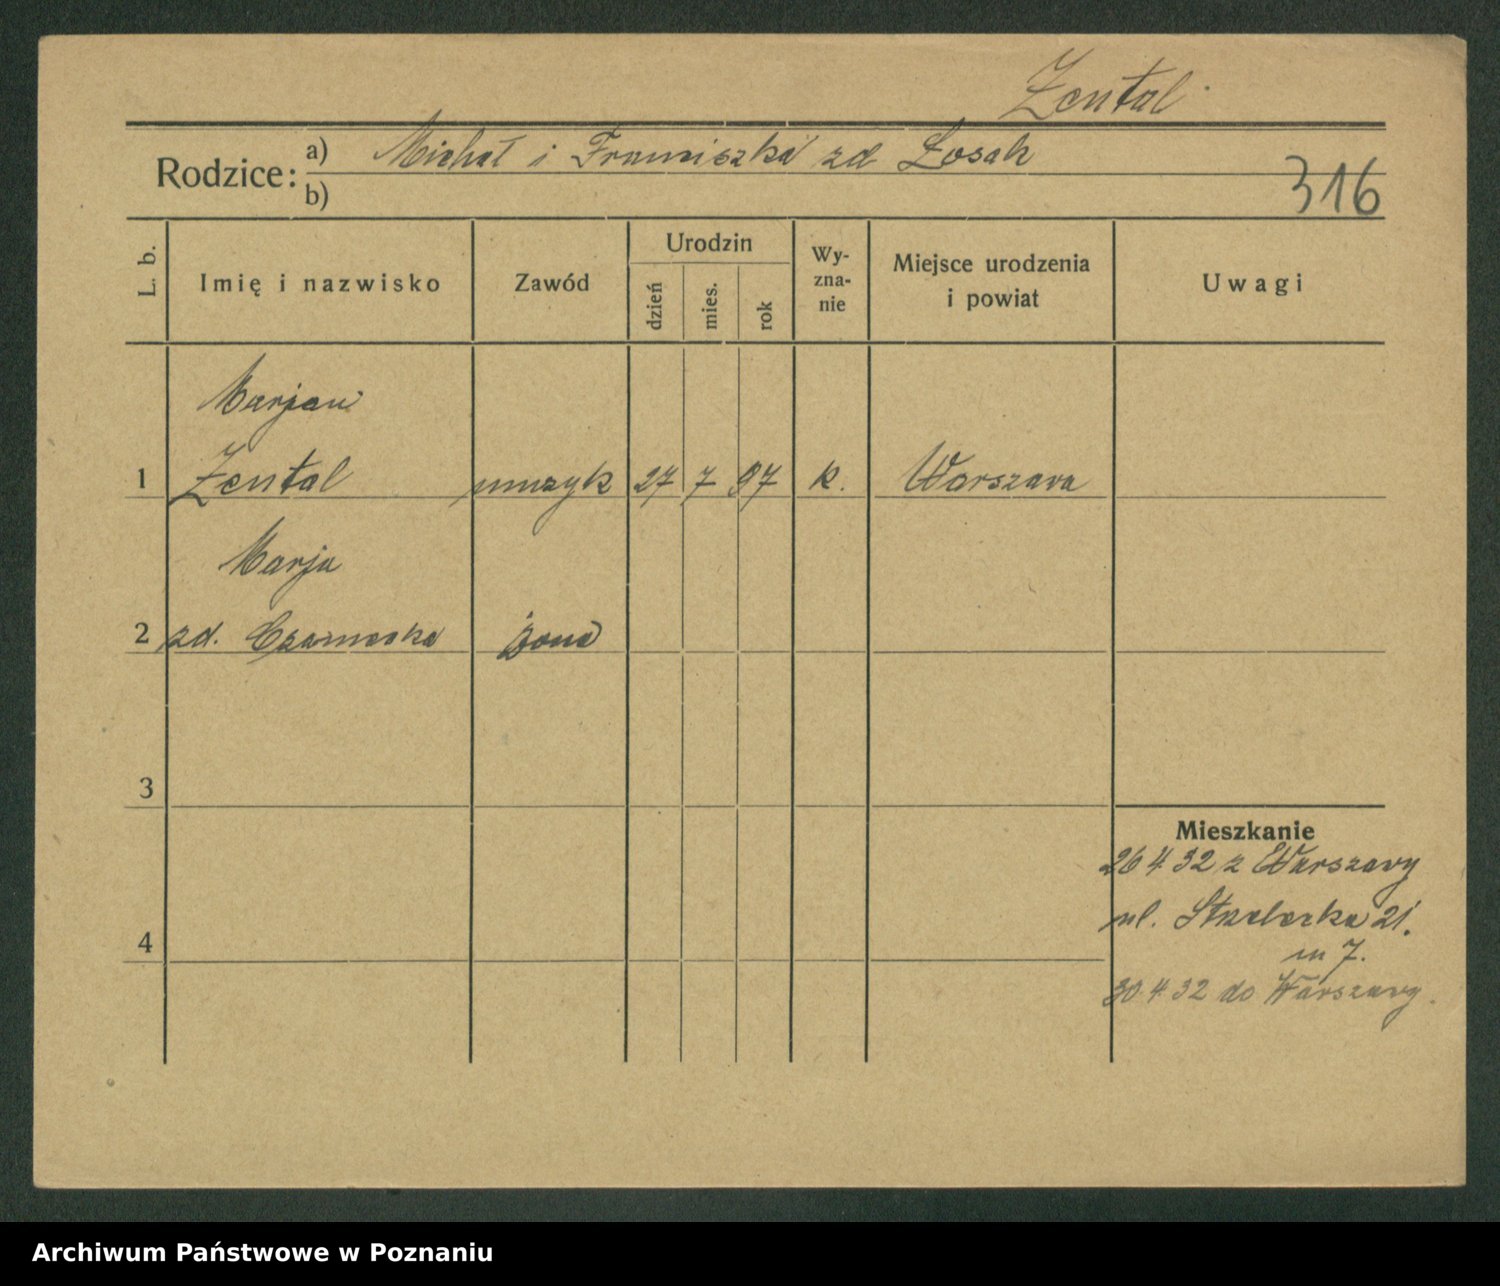 Zental
Rodzice: a) Michał i Franciszka zd Losak
b)
316
L. b. Imię i nazwisko Zawód Urodzin dzień mies. rok Wy-zna-nie Miejsce urodzenia i powiat Uwagi
Marjan
1 Zental muzyk 27 7 97 k. Warszawa
Marja
2 zd. Czarnecka żona
3
Mieszkanie
26 4 32 z Warszawy
ul. Strzelecka 21.
4
m 7.
30 4 32 do Warszawy.
Archiwum Państwowe w Poznaniu